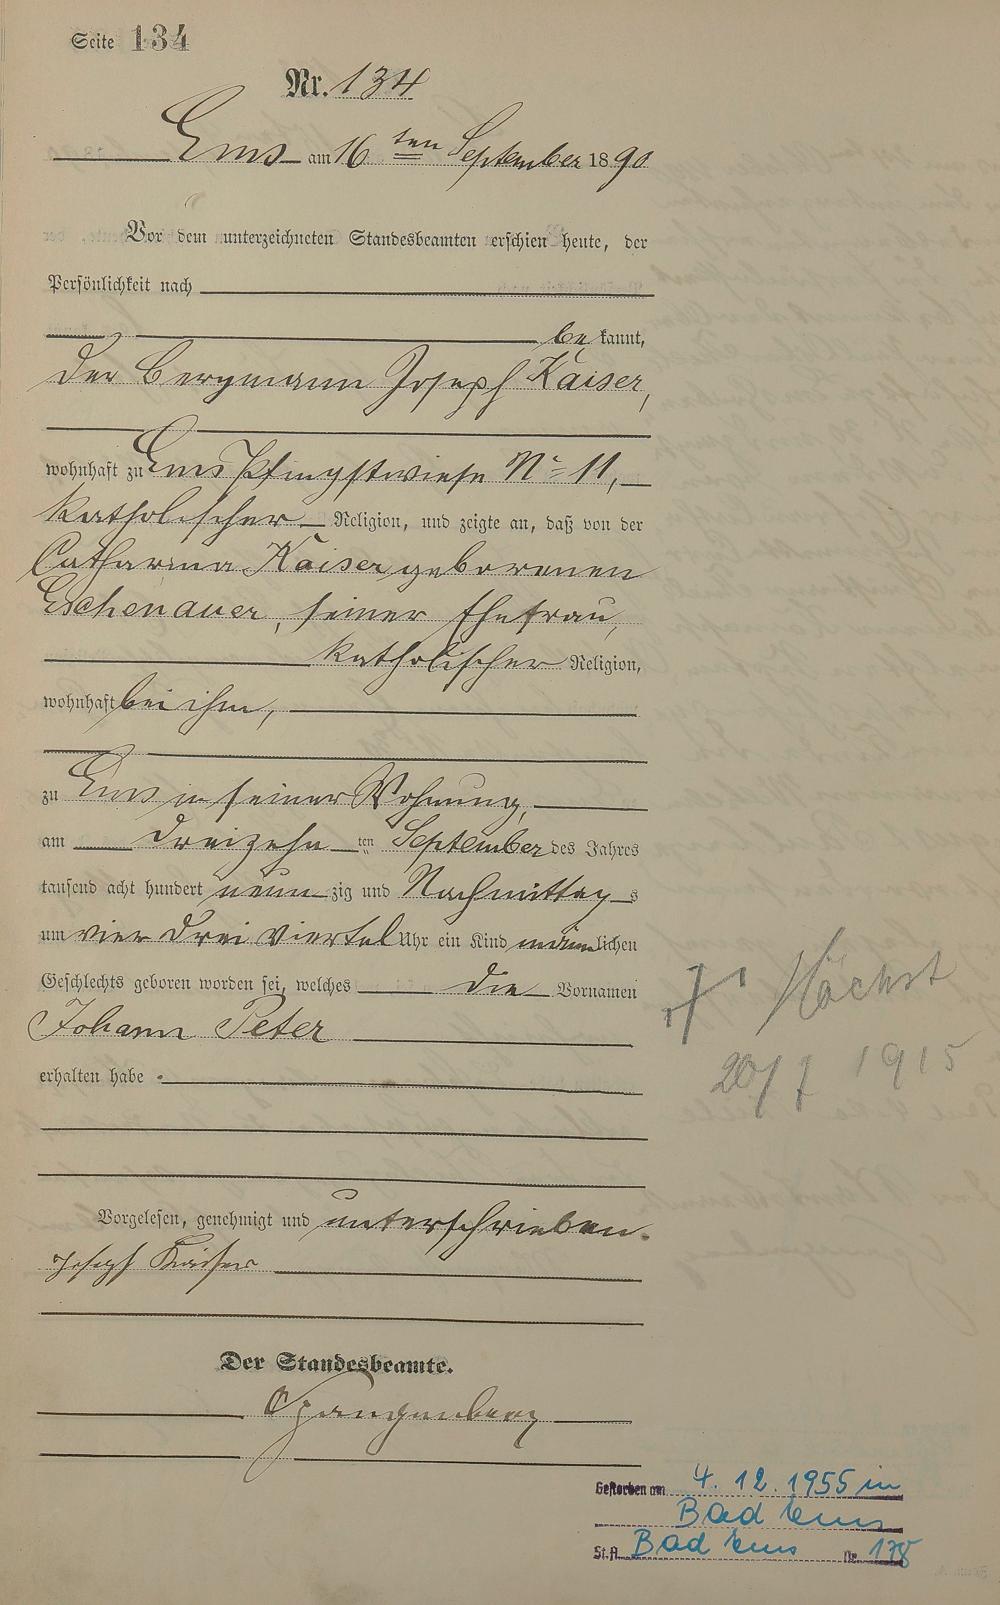 Seite 134
Nr. 134
Ems am 16ten September 1890
Vor dem unterzeichneten Standesbeamten erschien heute, der
Persönlichkeit nach
bekannt,
der Bergmann Joseph Kaiser,
wohnhaft zu Ems Pfingstwiese No 11,
katholischer Religion, und zeigte an, daß von der
Catharina Kaiser geborenen
Eschenauer, seiner Ehefrau,
katholischer Religion,
wohnhaft bei ihm,
zu Ems in seiner Wohnung,
am dreizehnten September des Jahres
tausend acht hundert neunzig und Nachmittags
um vier drei viertel Uhr ein Kind männlichen
Geschlechts geboren worden sei, welches die Vornamen
Johann Peter
erhalten habe.
Vorgelesen, genehmigt und unterschrieben.
Joseph Kaiser
Der Standesbeamte.
Spangenberg
Höchst
20/7 1915
Gestorben am 4.12.1955 in
Bad Ems
St.A. Bad Ems Nr. 178